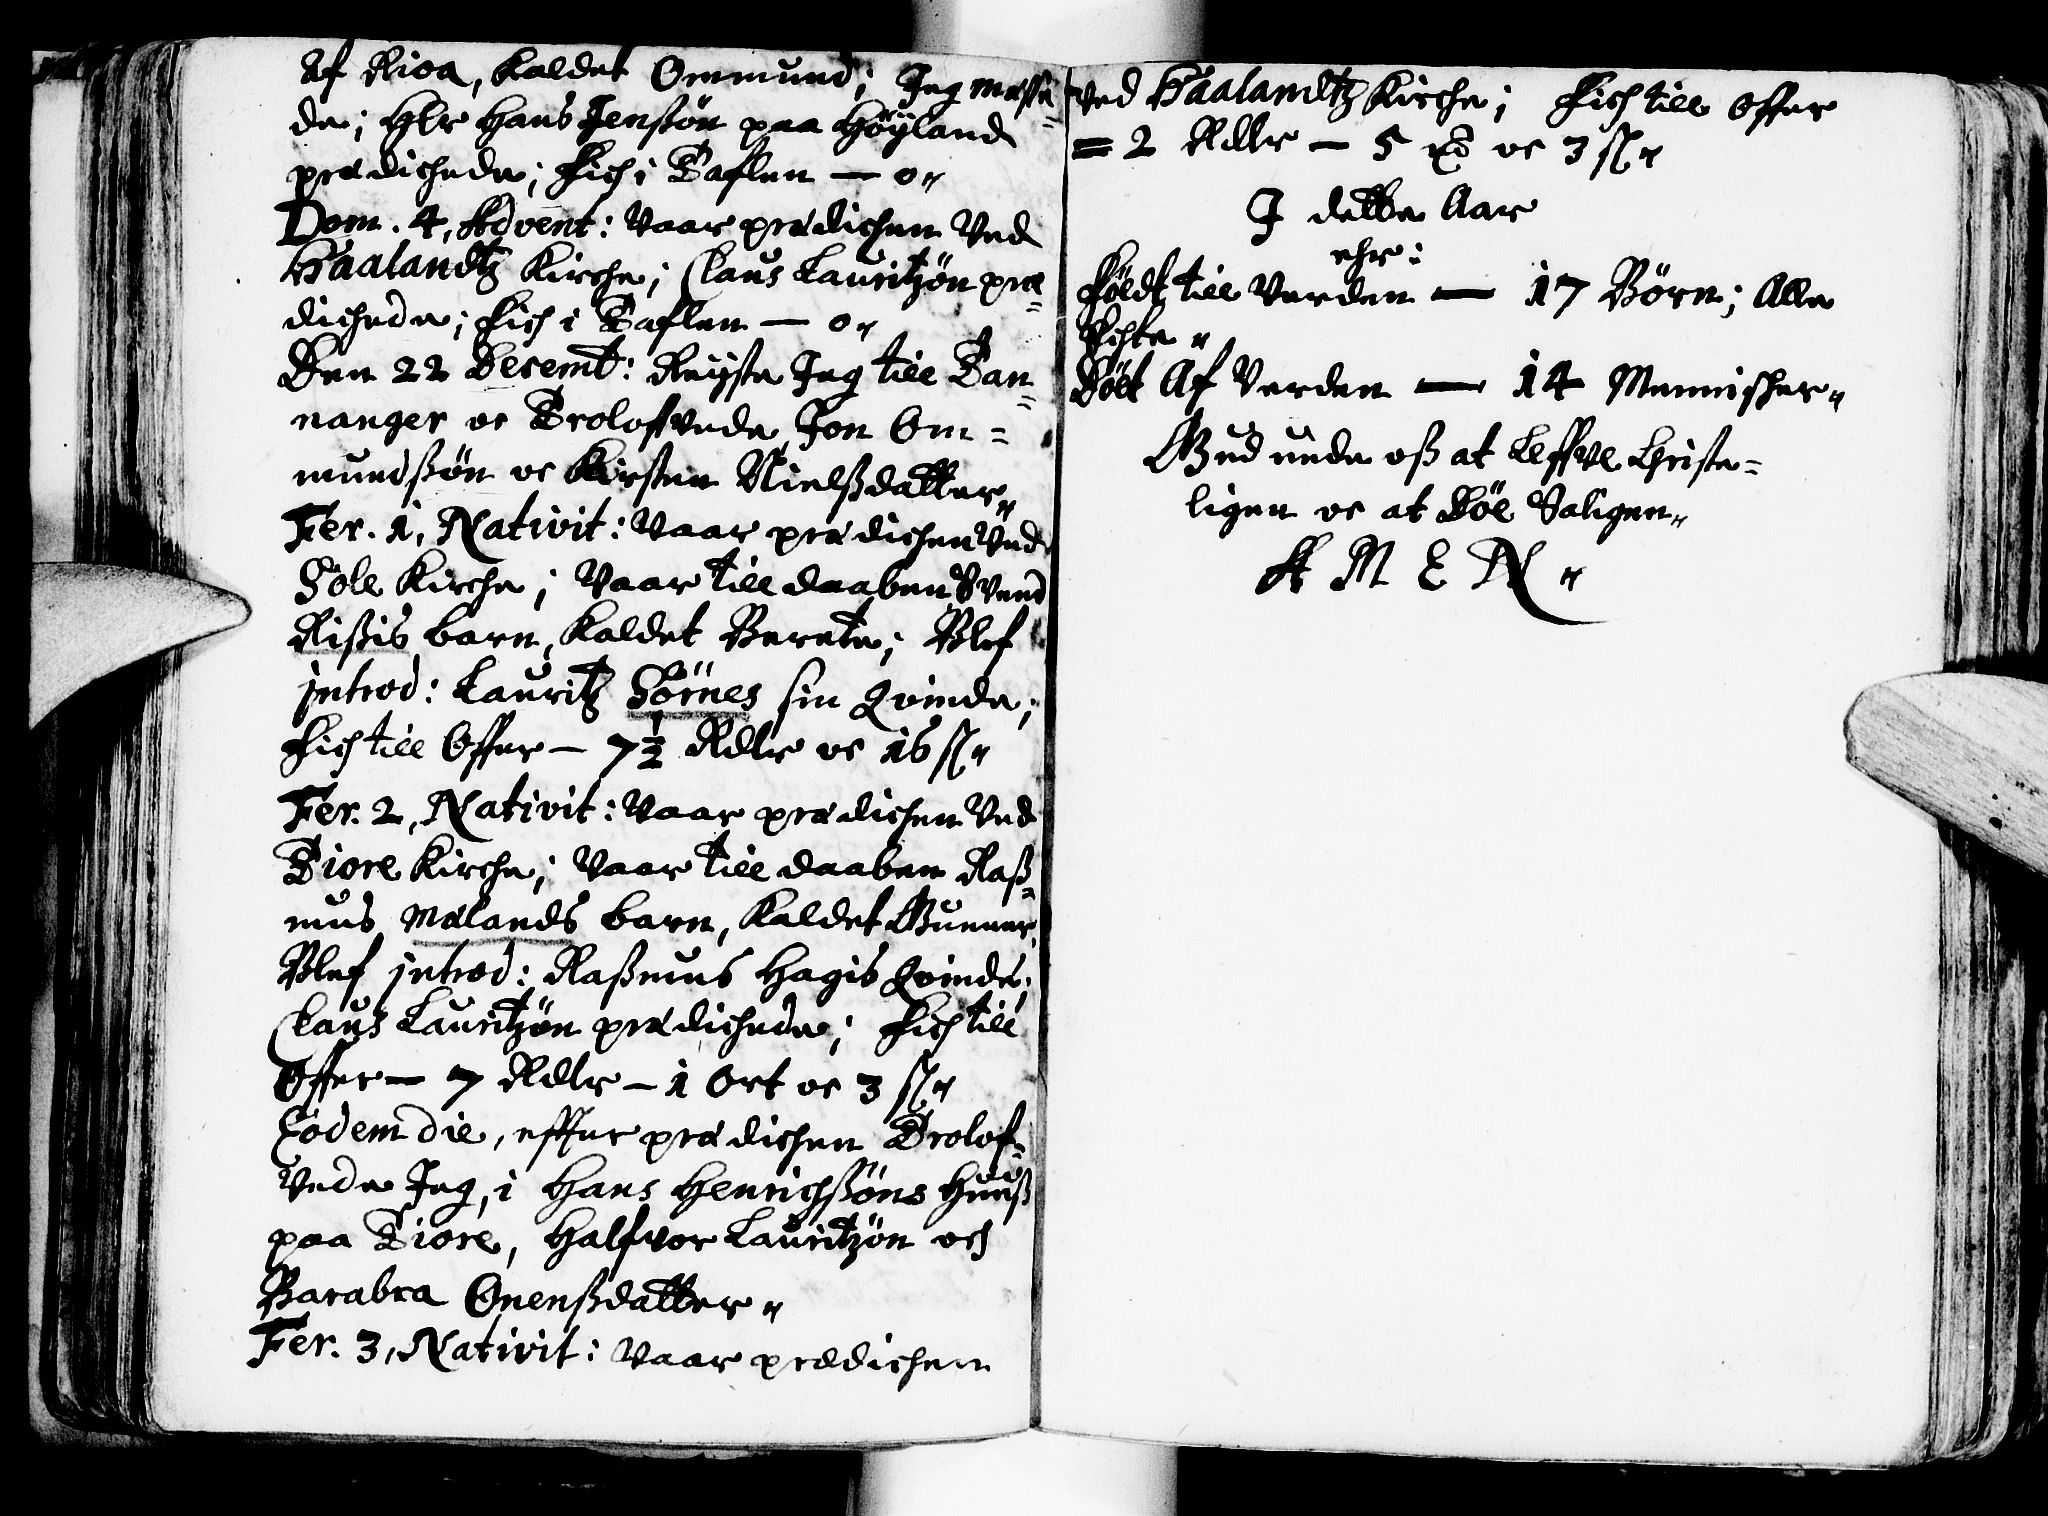 Af Rioa, kaldet Ommund; Jeg messe=
de; Hlr Hans Jenßøn paa Höÿland
prædichede; Fich i Taflen — 0"
Dom. 4, Advent: Vaar prædichen Ved
Haalandtz Kirche; Claus Lauritzøn præ=
dichede; Fich i Taflen — 0"
Den 22 Decemt: Reÿste Jeg till Tan=
nanger oc Trolofvede Jon Om=
mundßøn oc Kirsten Nielßdatter"
Fer. 1, Nativit: Vaar prædichen Ved
Sole Kirche; Vaar till daaben Svend
Rißis barn, kaldet Berete; Blef
introd: Lauritz Sörnes sin Qvinde;
Fich till Offer — 7½ Rdlr oc 16 ß"
Fer. 2, Nativit: Vaar prædichen Ved
Tiore Kirche; Vaar till daaben Raß=
mus Mælands barn, kaldet Gunner,
Blef introd: Raßmus Hagis Qvinde;
Claus Lauritzøn prædichede; Fich till
Offer — 7 Rdlr — 1 Ort oc 3 ß"
Eodem die, effter prædichen Trolof=
vede Jeg, i Hans Henrichßöns Huuß
paa Tiore, Halfvor Lauritzön och
Barabra Onenßdatter"
Fer. 3, Nativit: Vaar prædichen
ved Haalandtz Kirche; Fich till Offer
= 2 Rdlr — 5 oc 3 ß"
I dette Aar
ehr:
Födt till Verden — 17 Børn; Alle
Echte"
Döet Af Verden — 14 Mennischer"
Gud unde oß at Leffve Christe=
ligen oc at Döe Saligen"
A M E N"